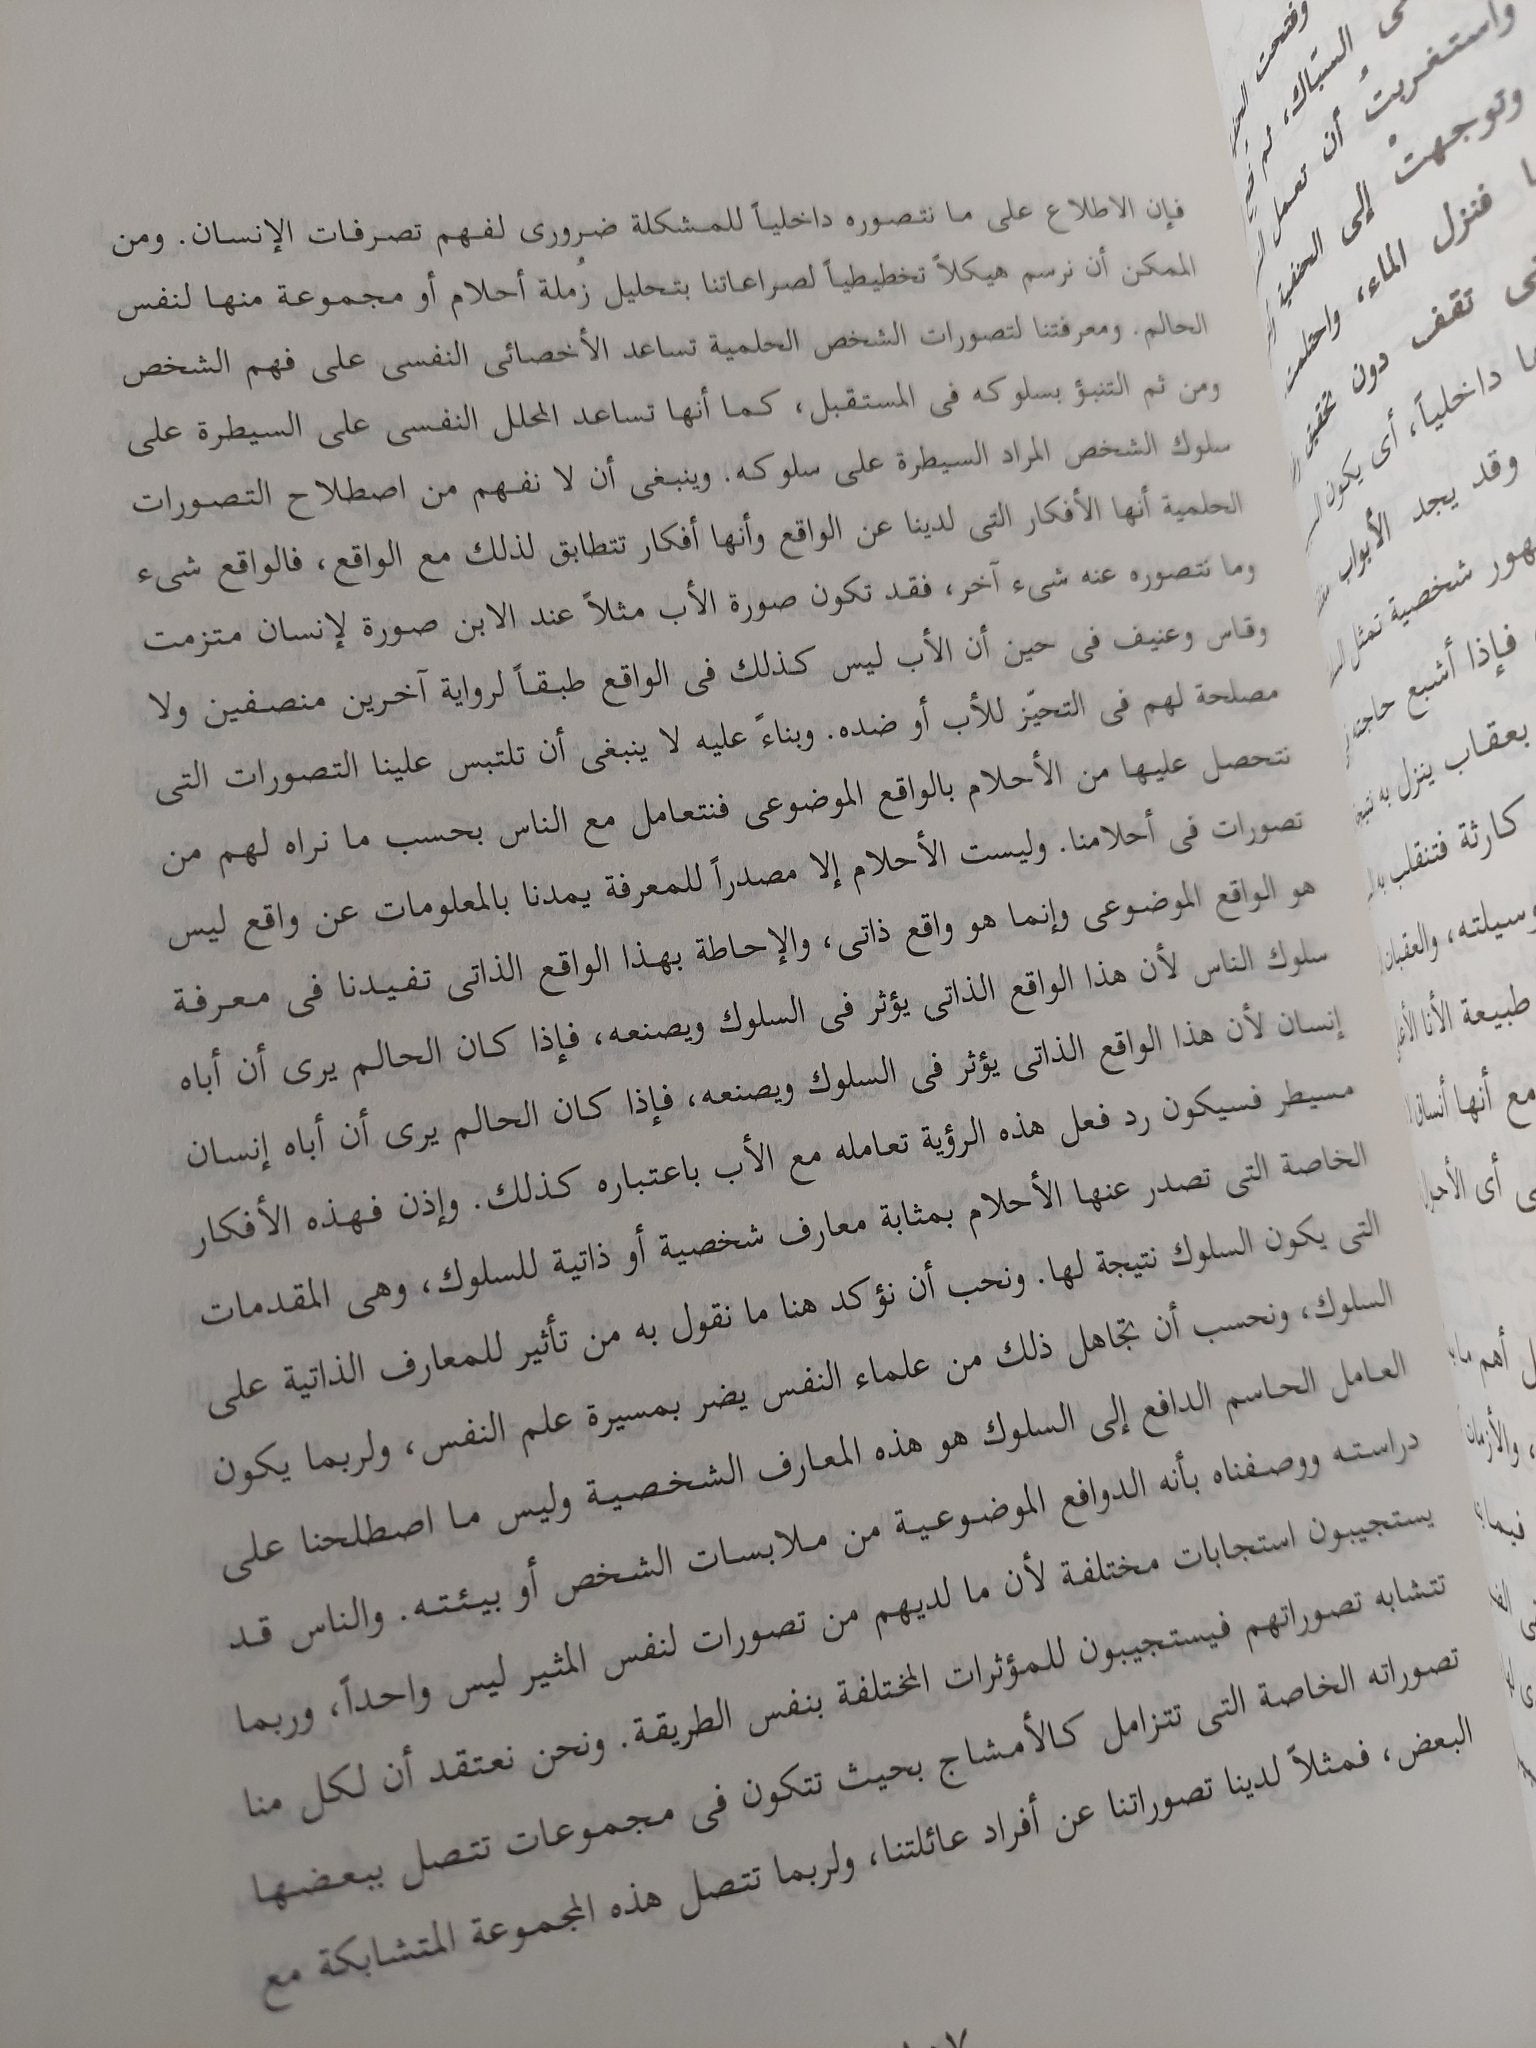 فإن الاطلاع على ما نتصوره داخلياً للمشكلة ضرورى لفهم تصرفات الإنسان. ومن
الممكن أن نرسم هيكلاً تخطيطياً لصراعاتنا بتحليل زُملة أحلام أو مجموعة منها لنفس
الحالم. ومعرفتنا لتصورات الشخص الحلمية تساعد الأخصائى النفسى على فهم الشخص
ومن ثم التنبؤ بسلوكه فى المستقبل، كما أنها تساعد المحلل النفسى على السيطرة على
سلوك الشخص المراد السيطرة على سلوكه. وينبغى أن لا نفهم من اصطلاح التصورات
الحلمية أنها الأفكار التى لدينا عن الواقع وأنها أفكار تتطابق لذلك مع الواقع، فالواقع شىء
وما نتصوره عنه شىء آخر، فقد تكون صورة الأب مثلاً عند الابن صورة لإنسان متزمت
وقاس وعنيف فى حين أن الأب ليس كذلك فى الواقع طبقاً لرواية آخرين منصفين ولا
مصلحة لهم فى التحيّز للأب أو ضده. وبناءً عليه لا ينبغى أن تلتبس علينا التصورات التى
نتحصل عليها من الأحلام بالواقع الموضوعى فنتعامل مع الناس بحسب ما نراه لهم من
تصورات فى أحلامنا. وليست الأحلام إلا مصدراً للمعرفة يمدنا بالمعلومات عن واقع ليس
هو الواقع الموضوعى وإنما هو واقع ذاتى، والإحاطة بهذا الواقع الذاتى تفيدنا فى معرفة
سلوك الناس لأن هذا الواقع الذاتى يؤثر فى السلوك ويصنعه، فإذا كان الحالم يرى أن أباه
إنسان لأن هذا الواقع الذاتى يؤثر فى السلوك ويصنعه، فإذا كان الحالم يرى أن أباه إنسان
مسيطر فسيكون رد فعل هذه الرؤية تعامله مع الأب باعتباره كذلك. وإذن فهذه الأفكار
الخاصة التى تصدر عنها الأحلام بمثابة معارف شخصية أو ذاتية للسلوك، وهى المقدمات
التى يكون السلوك نتيجة لها. ونحب أن نؤكد هنا ما نقول به من تأثير للمعارف الذاتية على
السلوك، ونحسب أن تجاهل ذلك من علماء النفس يضر بمسيرة علم النفس، ولربما يكون
العامل الحاسم الدافع إلى السلوك هو هذه المعارف الشخصية وليس ما اصطلحنا على
دراسته ووصفناه بأنه الدوافع الموضوعية من ملابسات الشخص أو بيئته. والناس قد
يستجيبون استجابات مختلفة لأن ما لديهم من تصورات لنفس المثير ليس واحداً، وربما
تتشابه تصوراتهم فيستجيبون للمؤثرات المختلفة بنفس الطريقة. ونحن نعتقد أن لكل منا
تصوراته الخاصة التى تتزامل كالأمشاج بحيث تتكون فى مجموعات تتصل ببعضها
البعض، فمثلاً لدينا تصوراتنا عن أفراد عائلتنا، ولربما تتصل هذه المجموعة المتشابكة مع
وفتحت
السبّاك، ثم
واستغربتُ أن تعمل
وتوجهتْ إلى الحنفية
فنزل الماء، واحتلمت
تقف دون تحقيق
داخلياً، أى يكون
وقد يجد الأبواب
شخصية تمثل
فإذا أشبع حاجته
بعقاب ينزل به
كارثة فتنقلب
والعقبان
طبيعة الأنا
مع أنها
أى الأحوال
أهم